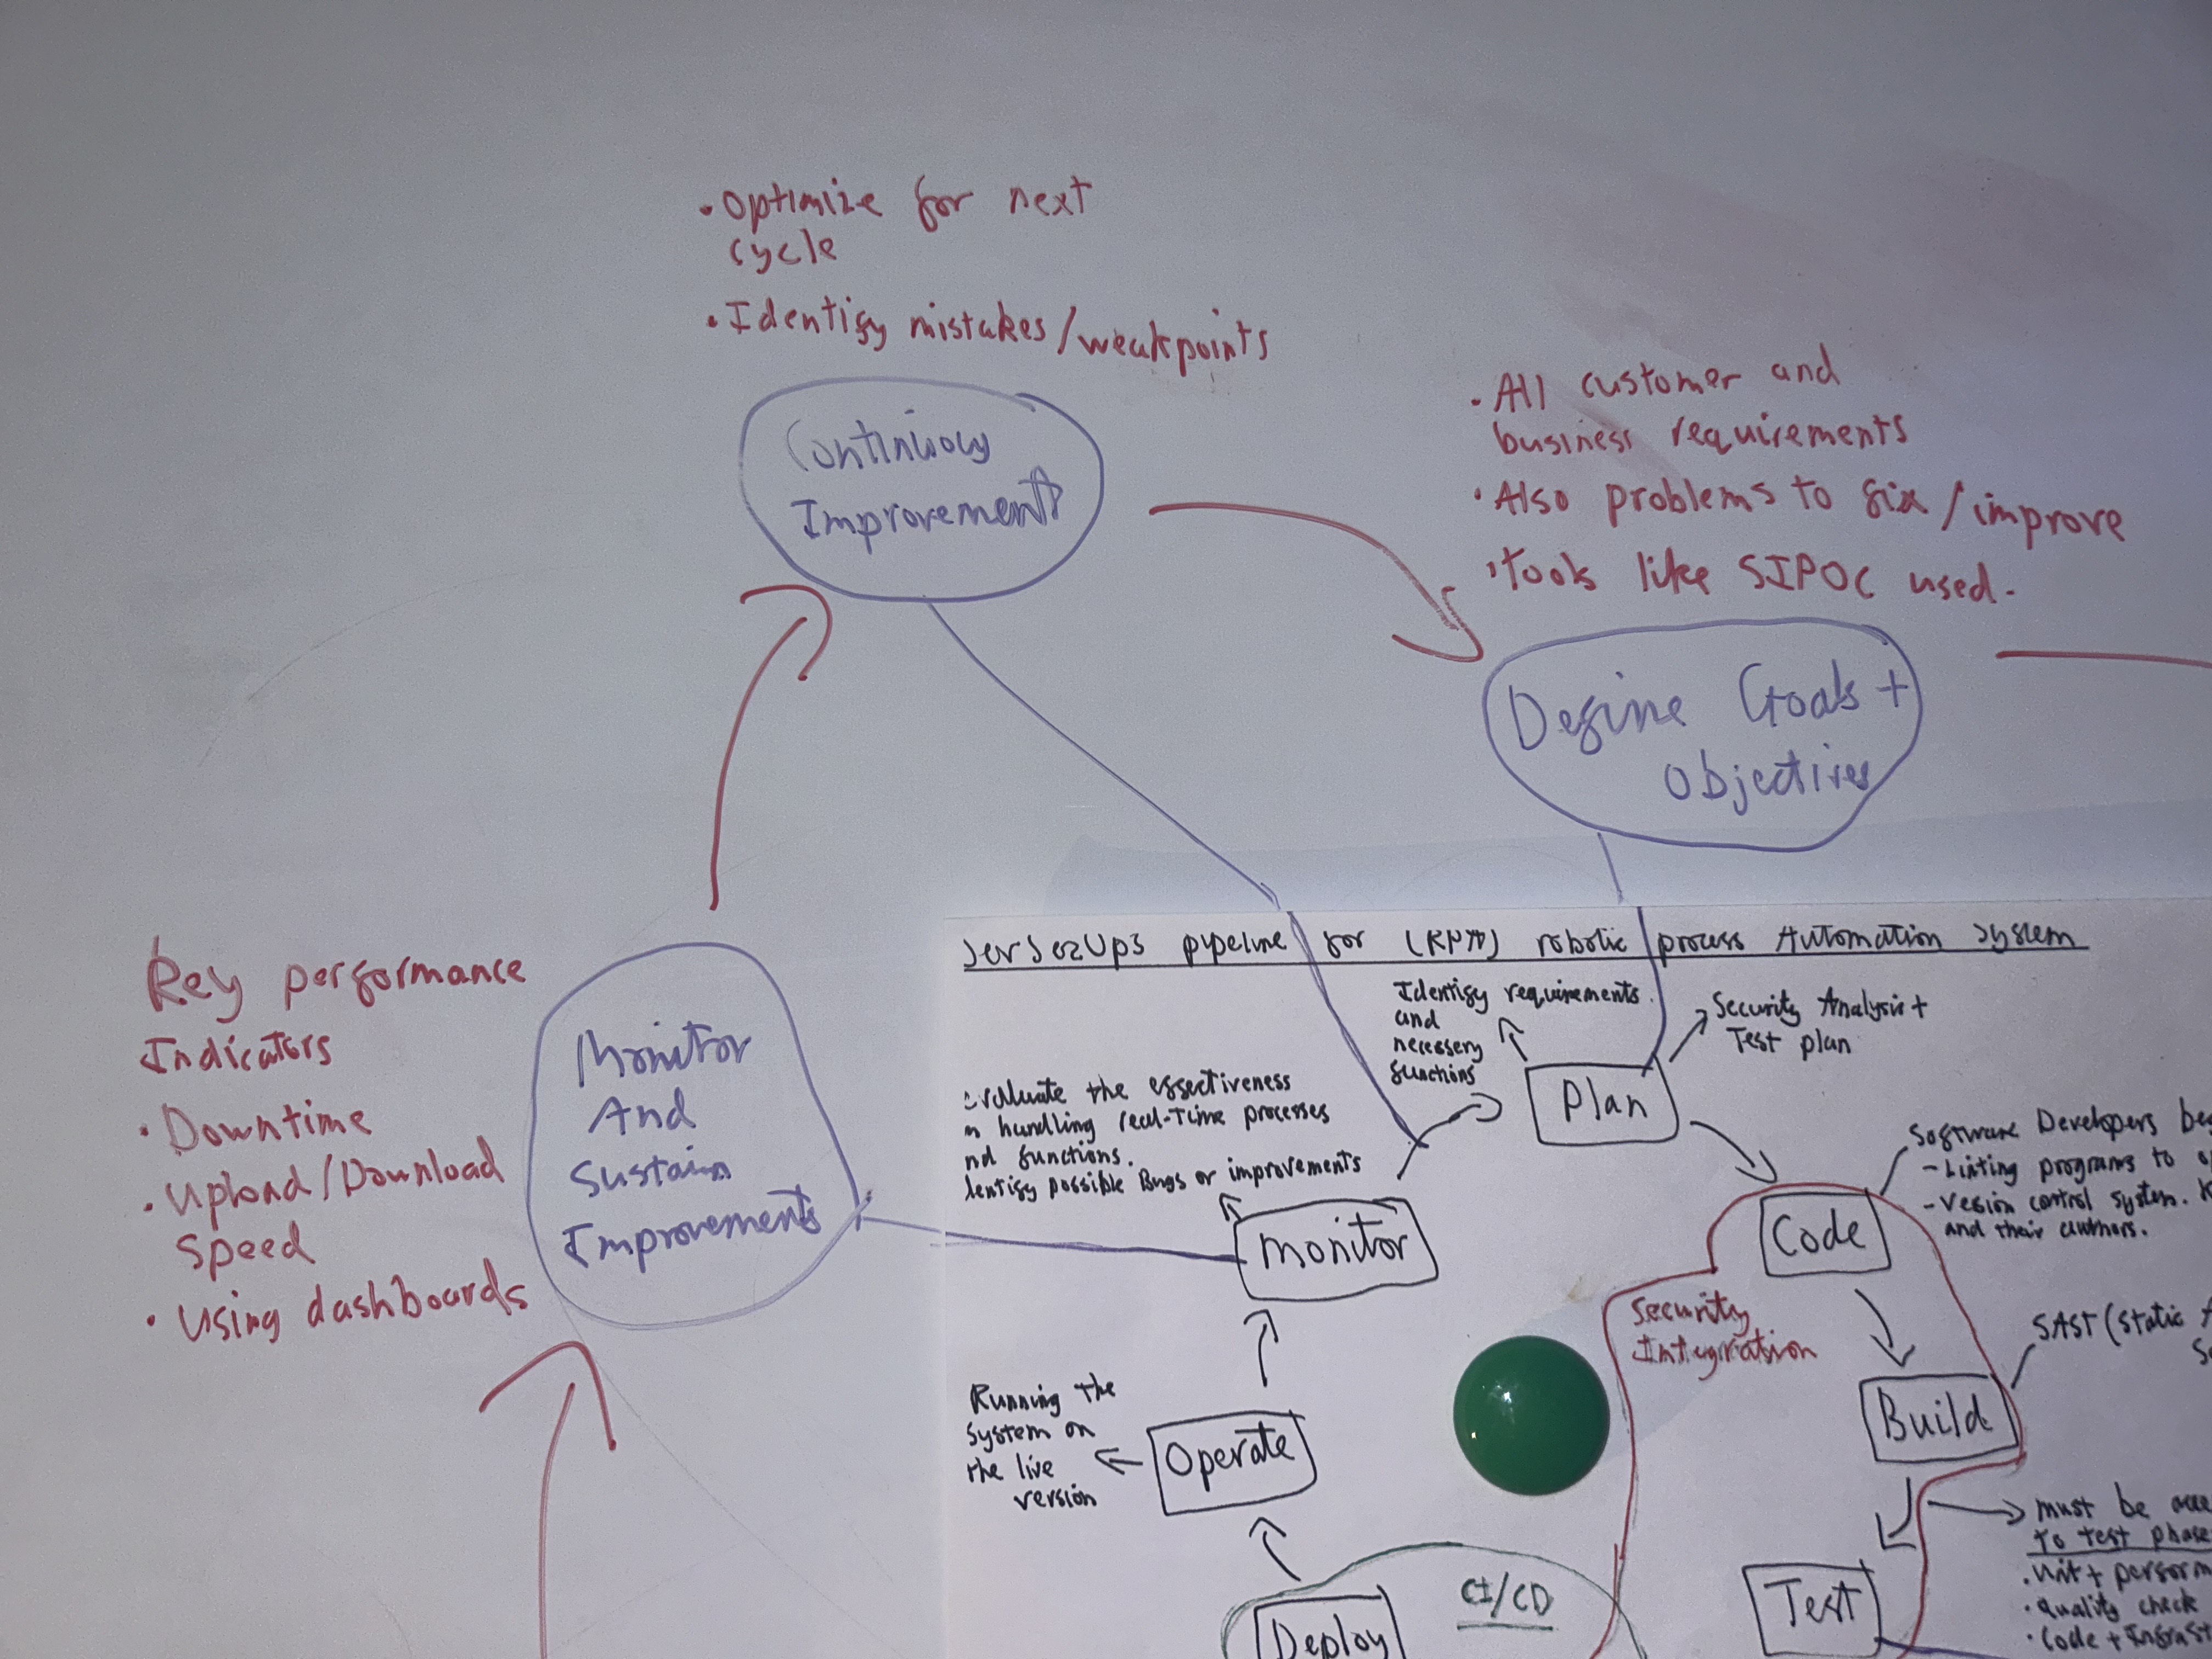 • Optimize for next
cycle
• Identify mistakes/weakpoints
Continuous
Improvements
• All customer and
business requirements
• Also problems to fix/improve
• tools like SIPOC used.
Define Goals +
Objectives
Key performance
Indicators
• Downtime
• Upload/Download
Speed
• Using dashboards
Monitor
And
Sustain
Improvements
pipeline for (RPA) robotic process Automation System
Identify requirements.
and
necessary
functions
Security Analysis +
Test plan
Plan
Evaluate the effectiveness
handling real-Time processes
functions.
possible Bugs or improvements
Monitor
Software Developers
- Linting programs to
- Vesion control system.
and their authors.
Code
Security
Integration
SAST (Static
Build
Running the
System on
the live
version
Operate
must be
to test phase
• Unit +
• quality check
• Code +
Test
CI/CD
Deploy